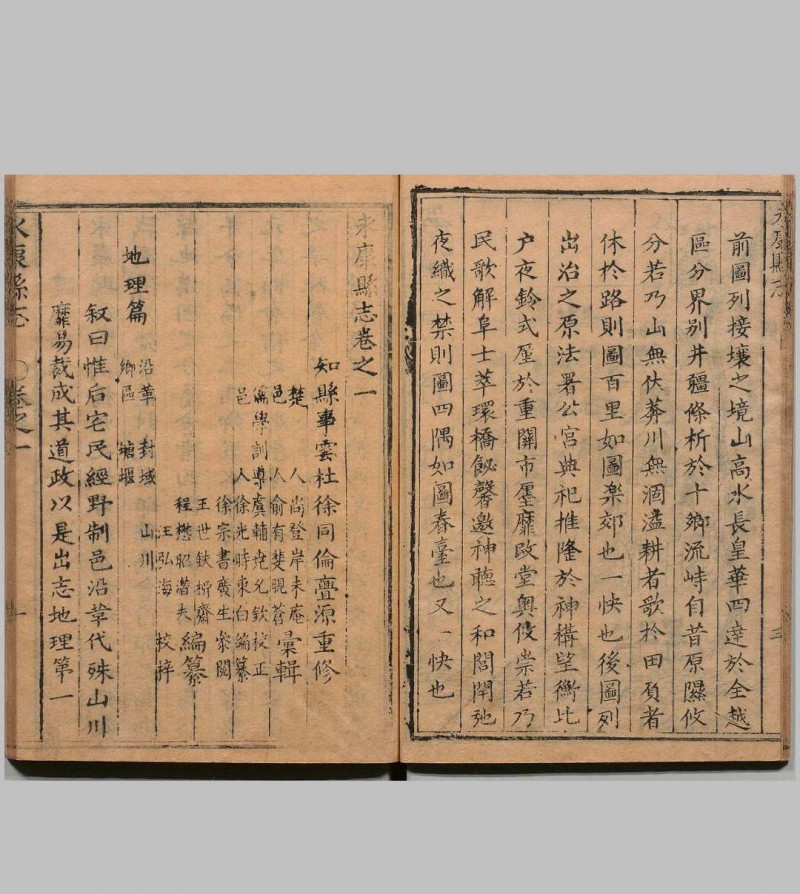 永康縣志
三
前圖列接壤之境山高水長皇華四達於全越
區分界別井疆條析於十鄉流峙自昔原隰攸
分若乃山無伏莽川無涸溢耕者歌於田負者
休於路則圖百里如圖樂郊也一快也後圖列
出治之原法署公宮典祀推隆於神構望衡比
戶夜鈴式壓於重關市廛靡改堂奧攸崇若乃
民歌解阜士萃環橋飶馨邀神聽之和閭閈弛
夜織之禁則圖四隅如圖春臺也又一快也
永康縣志卷之一
知縣事雲杜徐同倫亹源重修
楚人尚登岸未庵
邑人俞有斐睍蒼彙輯
儒學訓導虞輔堯允欽校正
邑人徐光時東白編纂
徐宗書廣生參閱
王世鈇柳齋
程懋昭潛夫編纂
汪弘海校梓
地理篇
沿革 封域 山川
鄉區 塘堰
叙曰惟后宅民經野制邑沿革代殊山川
靡易裁成其道政以是出志地理第一
永康縣志
卷之一
一